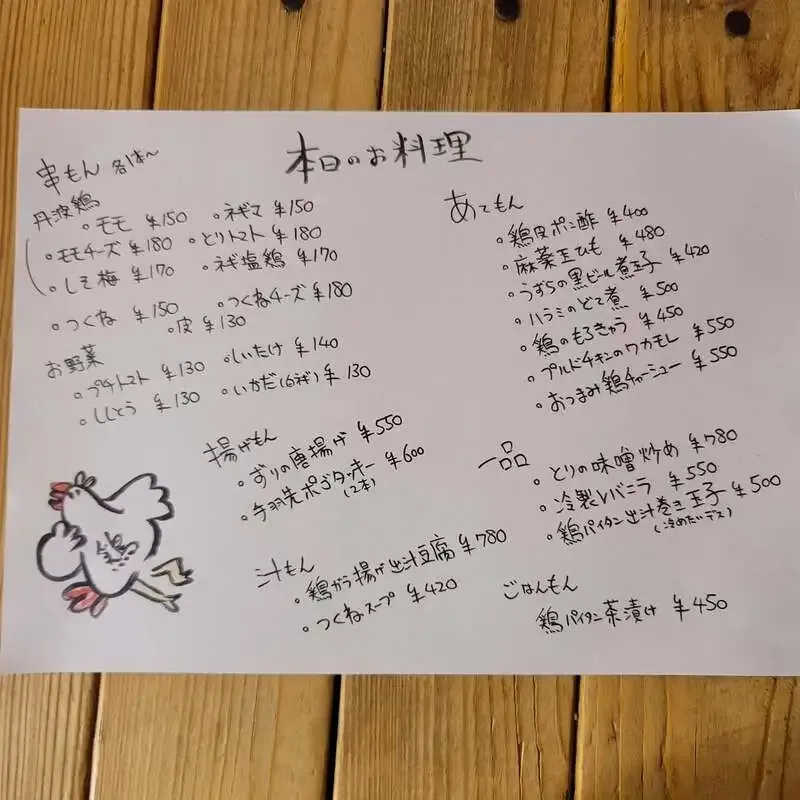 本日のお料理
串もん 各1本〜
丹波鶏
。モモ ¥150 。ネギマ ¥150
。モモチーズ ¥180 。とりトマト ¥180
。しそ梅 ¥170 。ネギ塩鶏 ¥170
。つくね ¥150 。つくねチーズ ¥180
。皮 ¥130
お野菜
。プチトマト ¥130 。しいたけ ¥140
。ししとう ¥130 。いかだ(白ネギ) ¥130
揚げもん
。ずりの唐揚げ ¥550
。手羽先ポゴタッキー ¥600
(2本)
汁もん
。鶏がら揚げ出汁豆腐 ¥780
。つくねスープ ¥420
あてもん
。鶏皮ポン酢 ¥400
。麻薬玉ひも ¥480
。うずらの黒ビール煮玉子 ¥420
。ハラミのどて煮 ¥500
。鶏のもろきゅう ¥450
。プルドチキンのワカモレ ¥550
。おつまみ鶏チャーシュー ¥550
一品
。とりの味噌炒め ¥780
。冷製レバニラ ¥550
。鶏パイタン出汁巻き玉子 ¥500
(冷めたいデス)
ごはんもん
鶏パイタン茶漬け ¥450